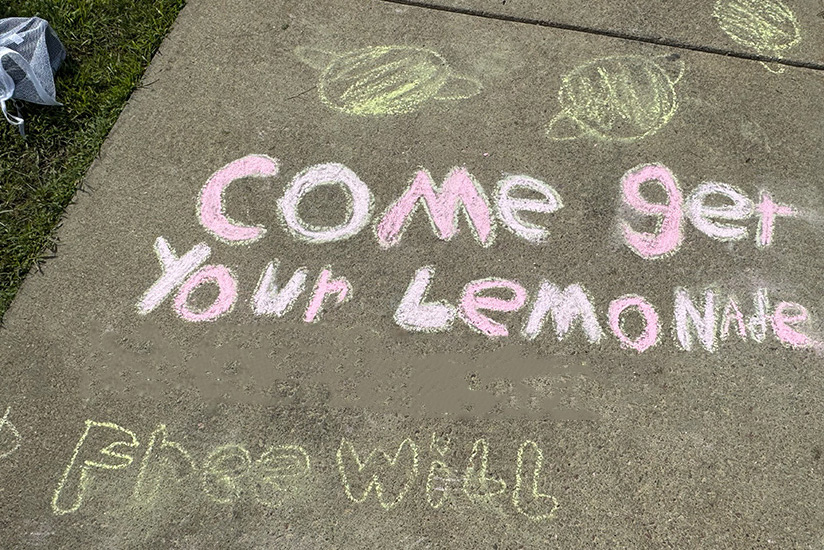 Come get
Your Lemonade
Free Will